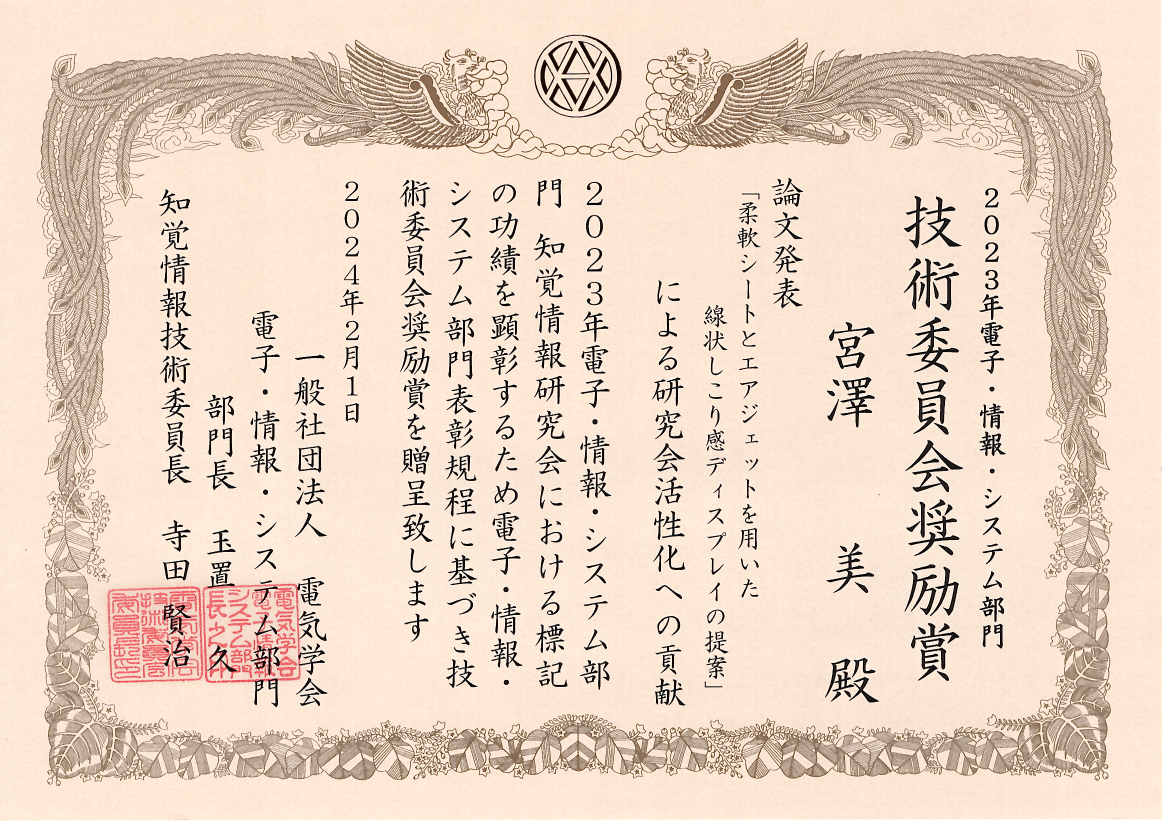 2023年電子・情報・システム部門
技術委員会奨励賞
宮澤 美 殿
論文発表
「柔軟シートとエアジェットを用いた
線状しこり感ディスプレイの提案」
による研究会活性化への貢献
2023年電子・情報・システム部
門 知覚情報研究会における標記
の功績を顕彰するため電子・情報・
システム部門表彰規程に基づき技
術委員会奨励賞を贈呈致します
2024年2月1日
一般社団法人 電気学会
電子・情報・システム部門
部門長 玉置 久
知覚情報技術委員長 寺田 賢治